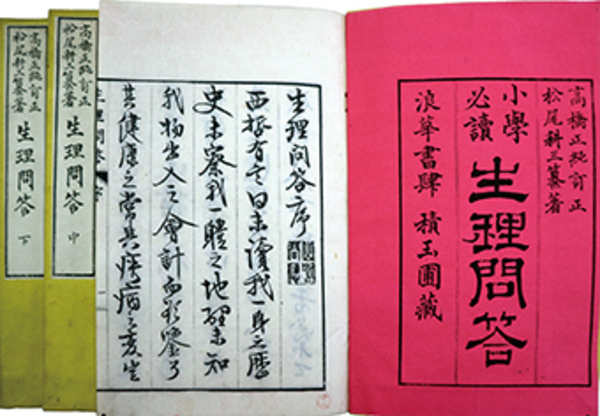 高橋正純訂正
松尾耕三纂著
小學
必讀
生理問答
浪華書肆 積玉圃藏
生理問答序
西哲有言曰未讀我一身之歷
史未察我一體之地理未知
我物出入之會計而鑒了
其健康之常其疾病之变生
生理問答 序
高橋正純訂正
松尾耕三纂著
生理問答 中
高橋正純訂正
松尾耕三纂著
生理問答 下